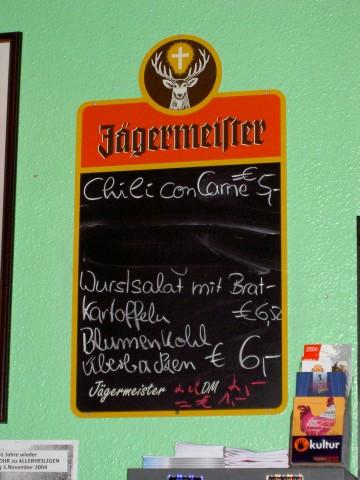 Jägermeister
Chili con Carne € 5,-
Wurstsalat mit Brat-
kartoffeln € 6,50
Blumenkohl
überbacken € 6,-
Jägermeister 2 cl DM 2,-
= € 1,-
2004
kultur
e Jahre wieder
OUR zu ALLERHEILIGEN
g 1.November 2004